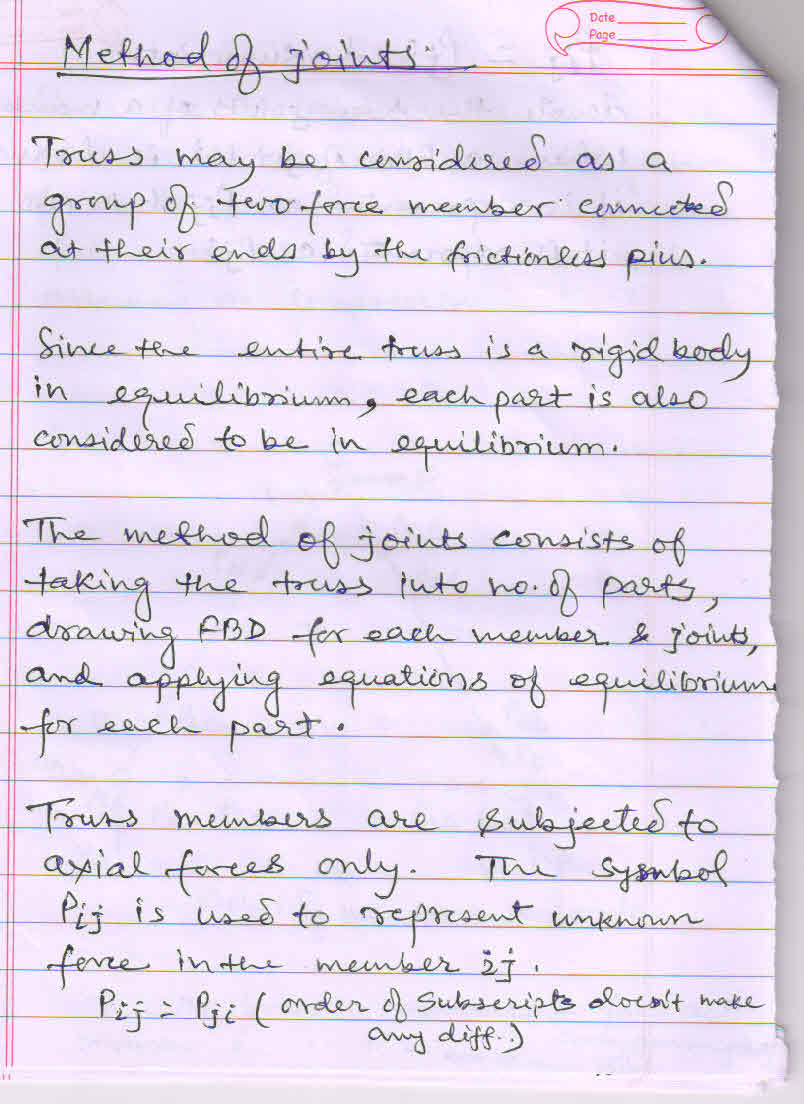 Date
Page
Method of joints.
Truss may be considered as a
group of two force member connected
at their ends by the frictionless pins.
Since the entire truss is a rigid body
in equilibrium, each part is also
considered to be in equilibrium.
The method of joints consists of
taking the truss into no. of parts,
drawing FBD for each member & joints,
and applying equations of equilibrium
for each part.
Truss members are subjected to
axial forces only. The symbol
Pij is used to represent unknown
force in the member ij.
Pij = Pji (order of Subscripts doesn't make
any diff.)